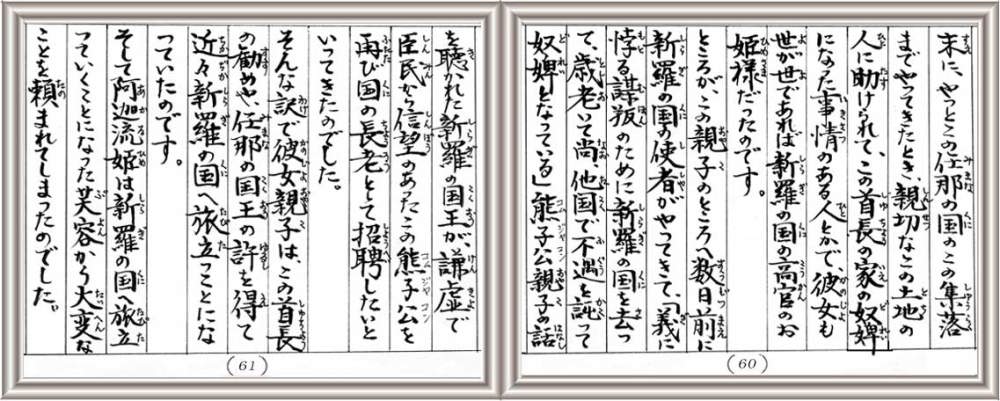 末に、やっとこの任那の国のこの集落
までやってきたとき、親切なこの土地の
人に助けられて、この首長の家の奴婢
になった事情のある人とかで、彼女も
世が世であれば新羅の国の高官のお
姫様だったのです。
ところが、この親子のところへ数日前に
新羅の国の使者がやってきて、「義に
悖る謀叛のために新羅の国を去っ
て、歳老いて尚、他国で不遇を託って
奴婢となっている」熊子公親子の話
(60)
を聴かれた新羅の国王が、謙虚で
臣民から信望のあったこの熊子公を
再び国の長老として招聘したいと
いってきたのでした。
そんな訳で彼女親子は、この首長
の勧めや、任那の国王の許を得て
近々新羅の国へ旅立つことにな
っていたのです。
そして阿迦流姫は新羅の国へ旅立
っていくことになった芙容から大変な
ことを頼まれてしまったのでした。
(61)